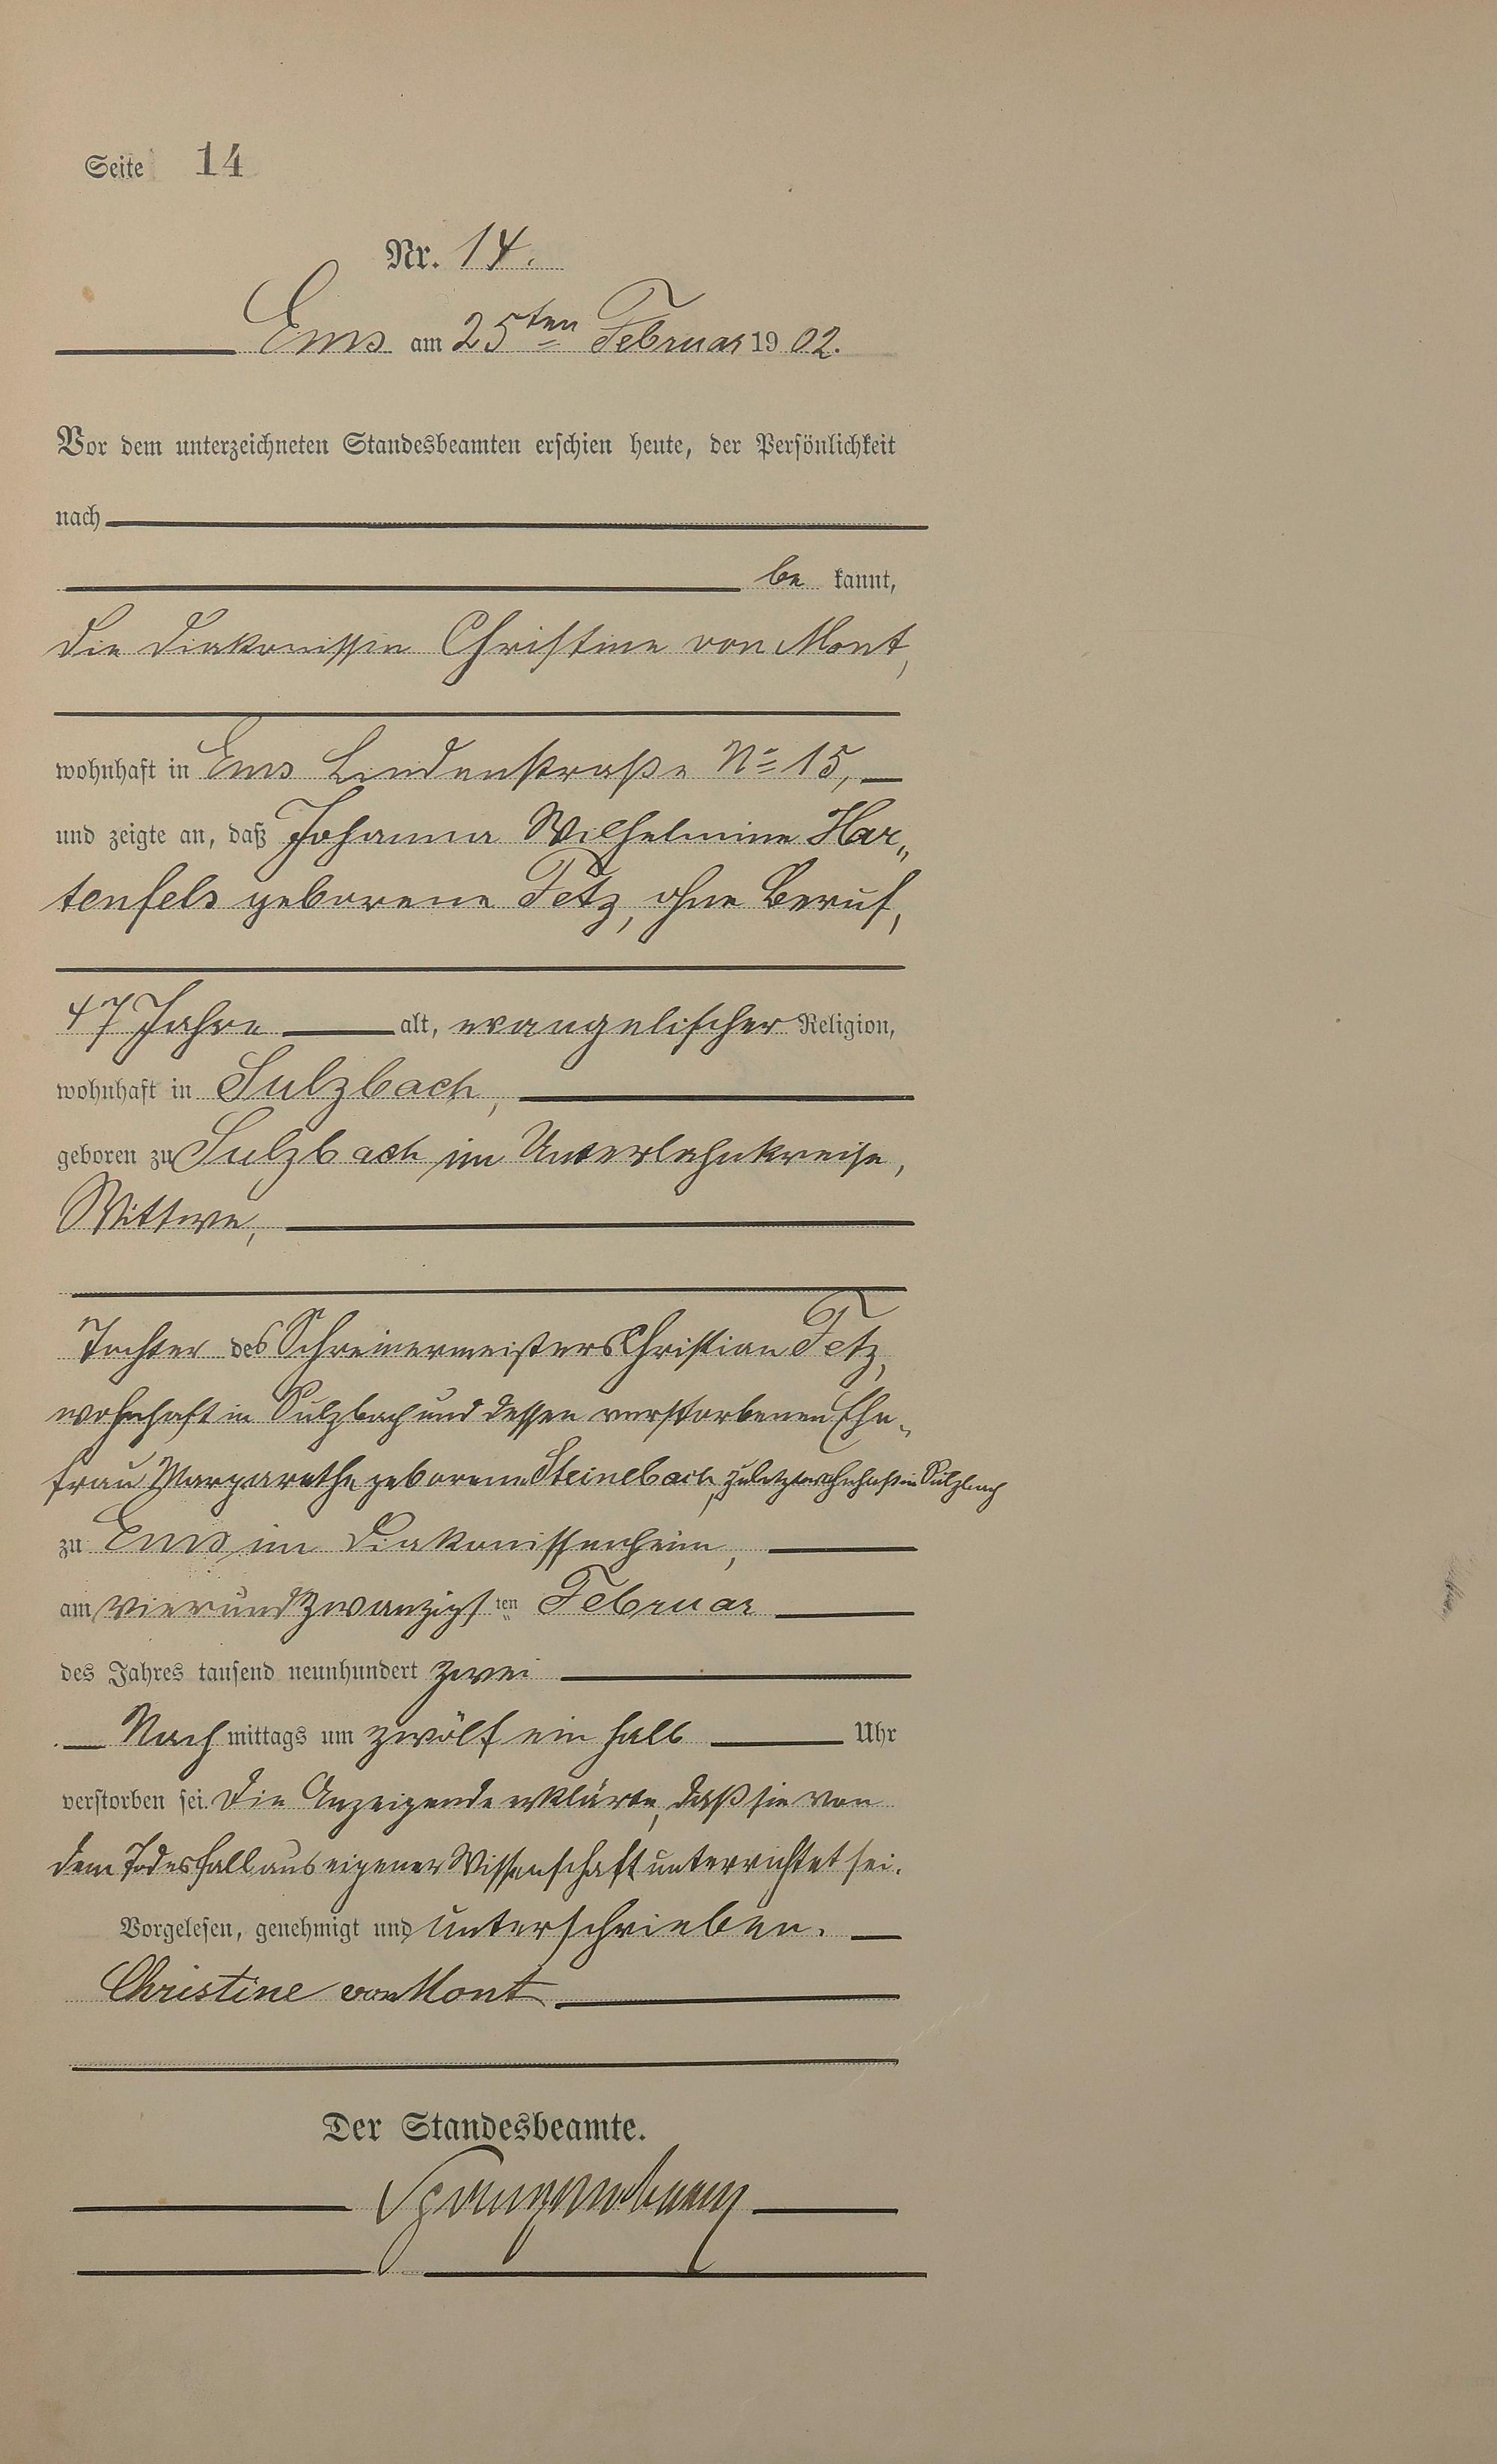 Seite 14
Nr. 14.
Ems am 25ten Februar 1902.
Vor dem unterzeichneten Standesbeamten erschien heute, der Persönlichkeit
nach
be kannt,
die Diakonissin Christine von Mont,
wohnhaft in Ems Lindenstraße No 15,
und zeigte an, daß Johanna Wilhelmine Har„
tenfels geborene Fetz, ohne Beruf,
47 Jahre alt, evangelischer Religion,
wohnhaft in Sulzbach,
geboren zu Sulzbach im Unterlahnkreise,
Wittwe,
Tochter des Schreinermeisters Christian Fetz,
wohnhaft in Sulzbach und dessen verstorbenen Ehe„
frau Margarethe geborene Steinebach, zuletzt wohnhaft in Sulzbach
zu Ems im Diakonissenheim,
am vierundzwanzigsten Februar
des Jahres tausend neunhundert zwei
Nach mittags um zwölf ein halb Uhr
verstorben sei. Die Anzeigende erklärte, daß sie von
dem Todesfall aus eigener Wissenschaft unterrichtet sei.
Vorgelesen, genehmigt und unterschrieben.
Christine von Mont
Der Standesbeamte.